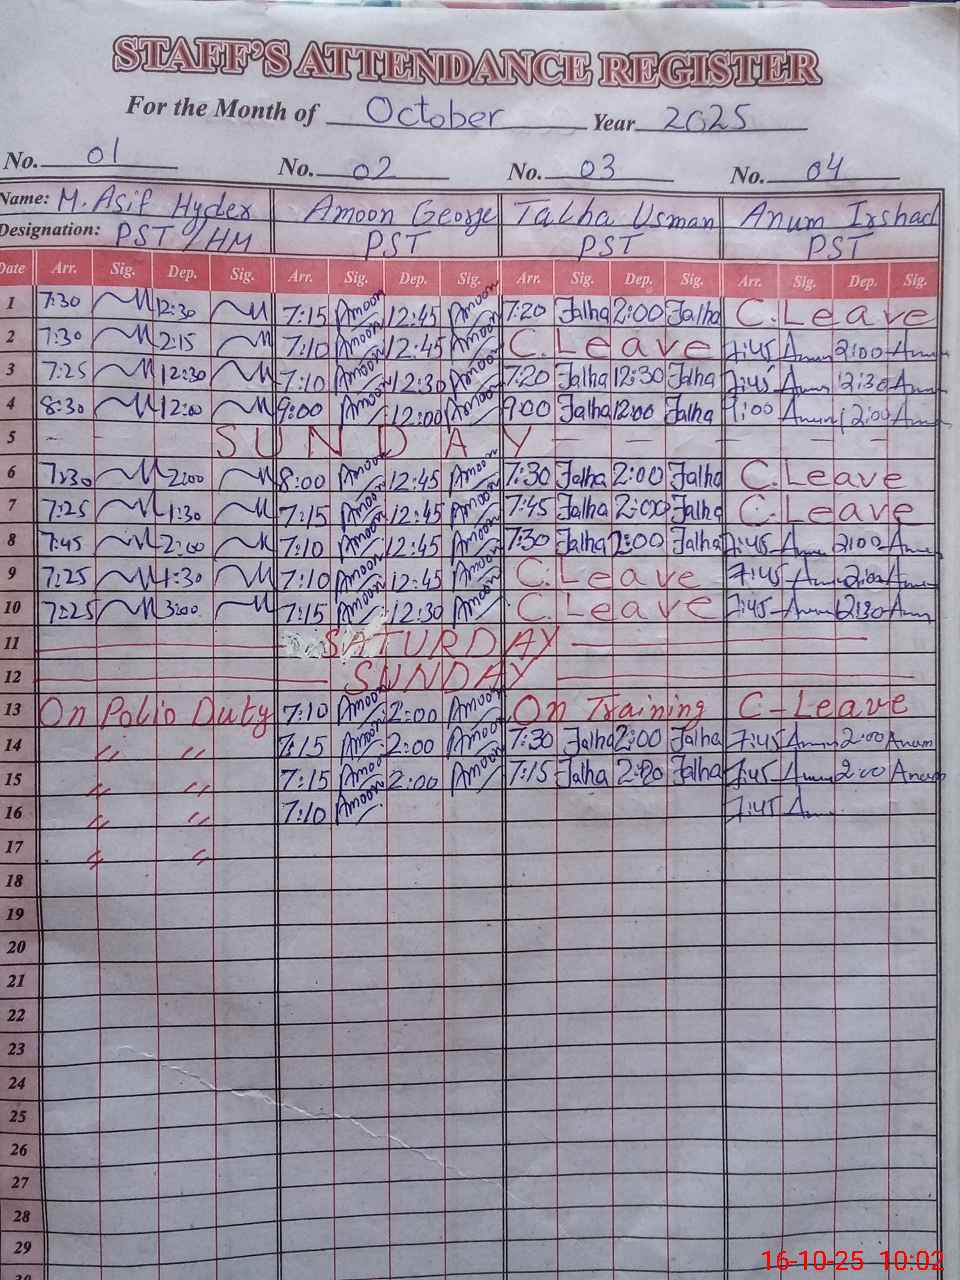 STAFF'S ATTENDANCE REGISTER
For the Month of October Year 2025
No. 01 No. 02 No. 03 No. 04
Name: M. Asif Hyder Amoon George Talha Usman Anum Irshad
Designation: PST / HM PST PST PST
Date Arr. Sig. Dep. Sig. Arr. Sig. Dep. Sig. Arr. Sig. Dep. Sig. Arr. Sig. Dep. Sig.
1 7:30 12:30 7:15 Amoon 12:45 Amoon 7:20 Talha 2:00 Talha C.Leave
2 7:30 2:15 7:10 Amoon 12:45 Amoon C.Leave 7:45 Anum 2:00 Anum
3 7:25 12:30 7:10 Amoon 12:30 Amoon 7:20 Talha 12:30 Talha 7:45 Anum 12:30 Anum
4 8:30 12:00 9:00 Amoon 12:00 Amoon 9:00 Talha 12:00 Talha 9:00 Anum 12:00 Anum
5 - - SUNDAY - - - - - -
6 7:30 2:00 8:00 Amoon 12:45 Amoon 7:30 Talha 2:00 Talha C.Leave
7 7:25 1:30 7:15 Amoon 12:45 Amoon 7:45 Talha 2:00 Talha C.Leave
8 7:45 2:00 7:10 Amoon 12:45 Amoon 7:30 Talha 2:00 Talha 7:45 Anum 2:00 Anum
9 7:25 1:30 7:10 Amoon 12:45 Amoon C.Leave 7:45 Anum 2:00 Anum
10 7:25 3:00 7:15 Amoon 12:30 Amoon C.Leave 7:45 Anum 12:30 Anum
11 SATURDAY
12 SUNDAY
13 On Polio Duty 7:10 Amoon 2:00 Amoon On Training C-Leave
14 " " 7:15 Amoon 2:00 Amoon 7:30 Talha 2:00 Talha 7:45 Anum 2:00 Anum
15 " " 7:15 Amoon 2:00 Amoon 7:15 Talha 2:00 Talha 7:45 Anum 2:00 Anum
16 " " 7:10 Amoon 7:45 Anum
17 " "
18
19
20
21
22
23
24
25
26
27
28
29
16-10-25 10:02